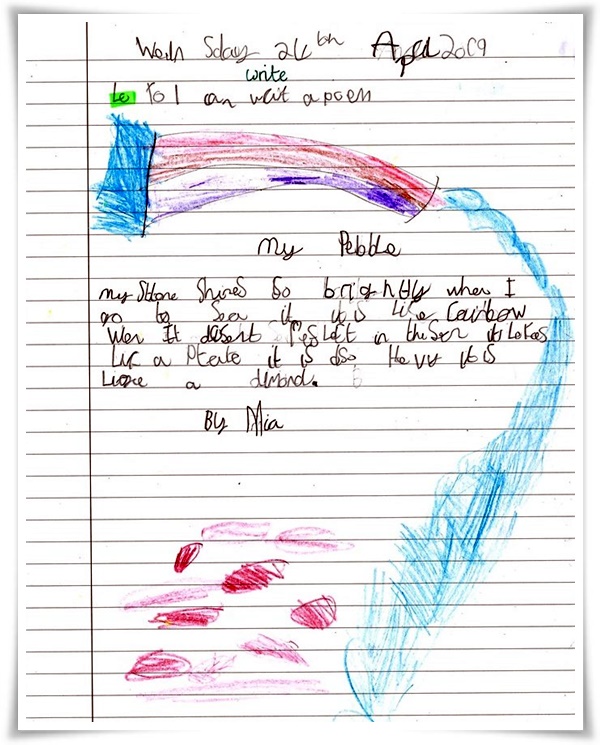 Wedn Sday 24th April 2019
write
Lo To I can writ a poem
My Pebble
my Stone Shines So brightly when I
go to Seer it it is Like rainbow
Wen It dosent in the Sun it Lokes
Like a it is also Hevy it is
Like a dimond.
By Mia